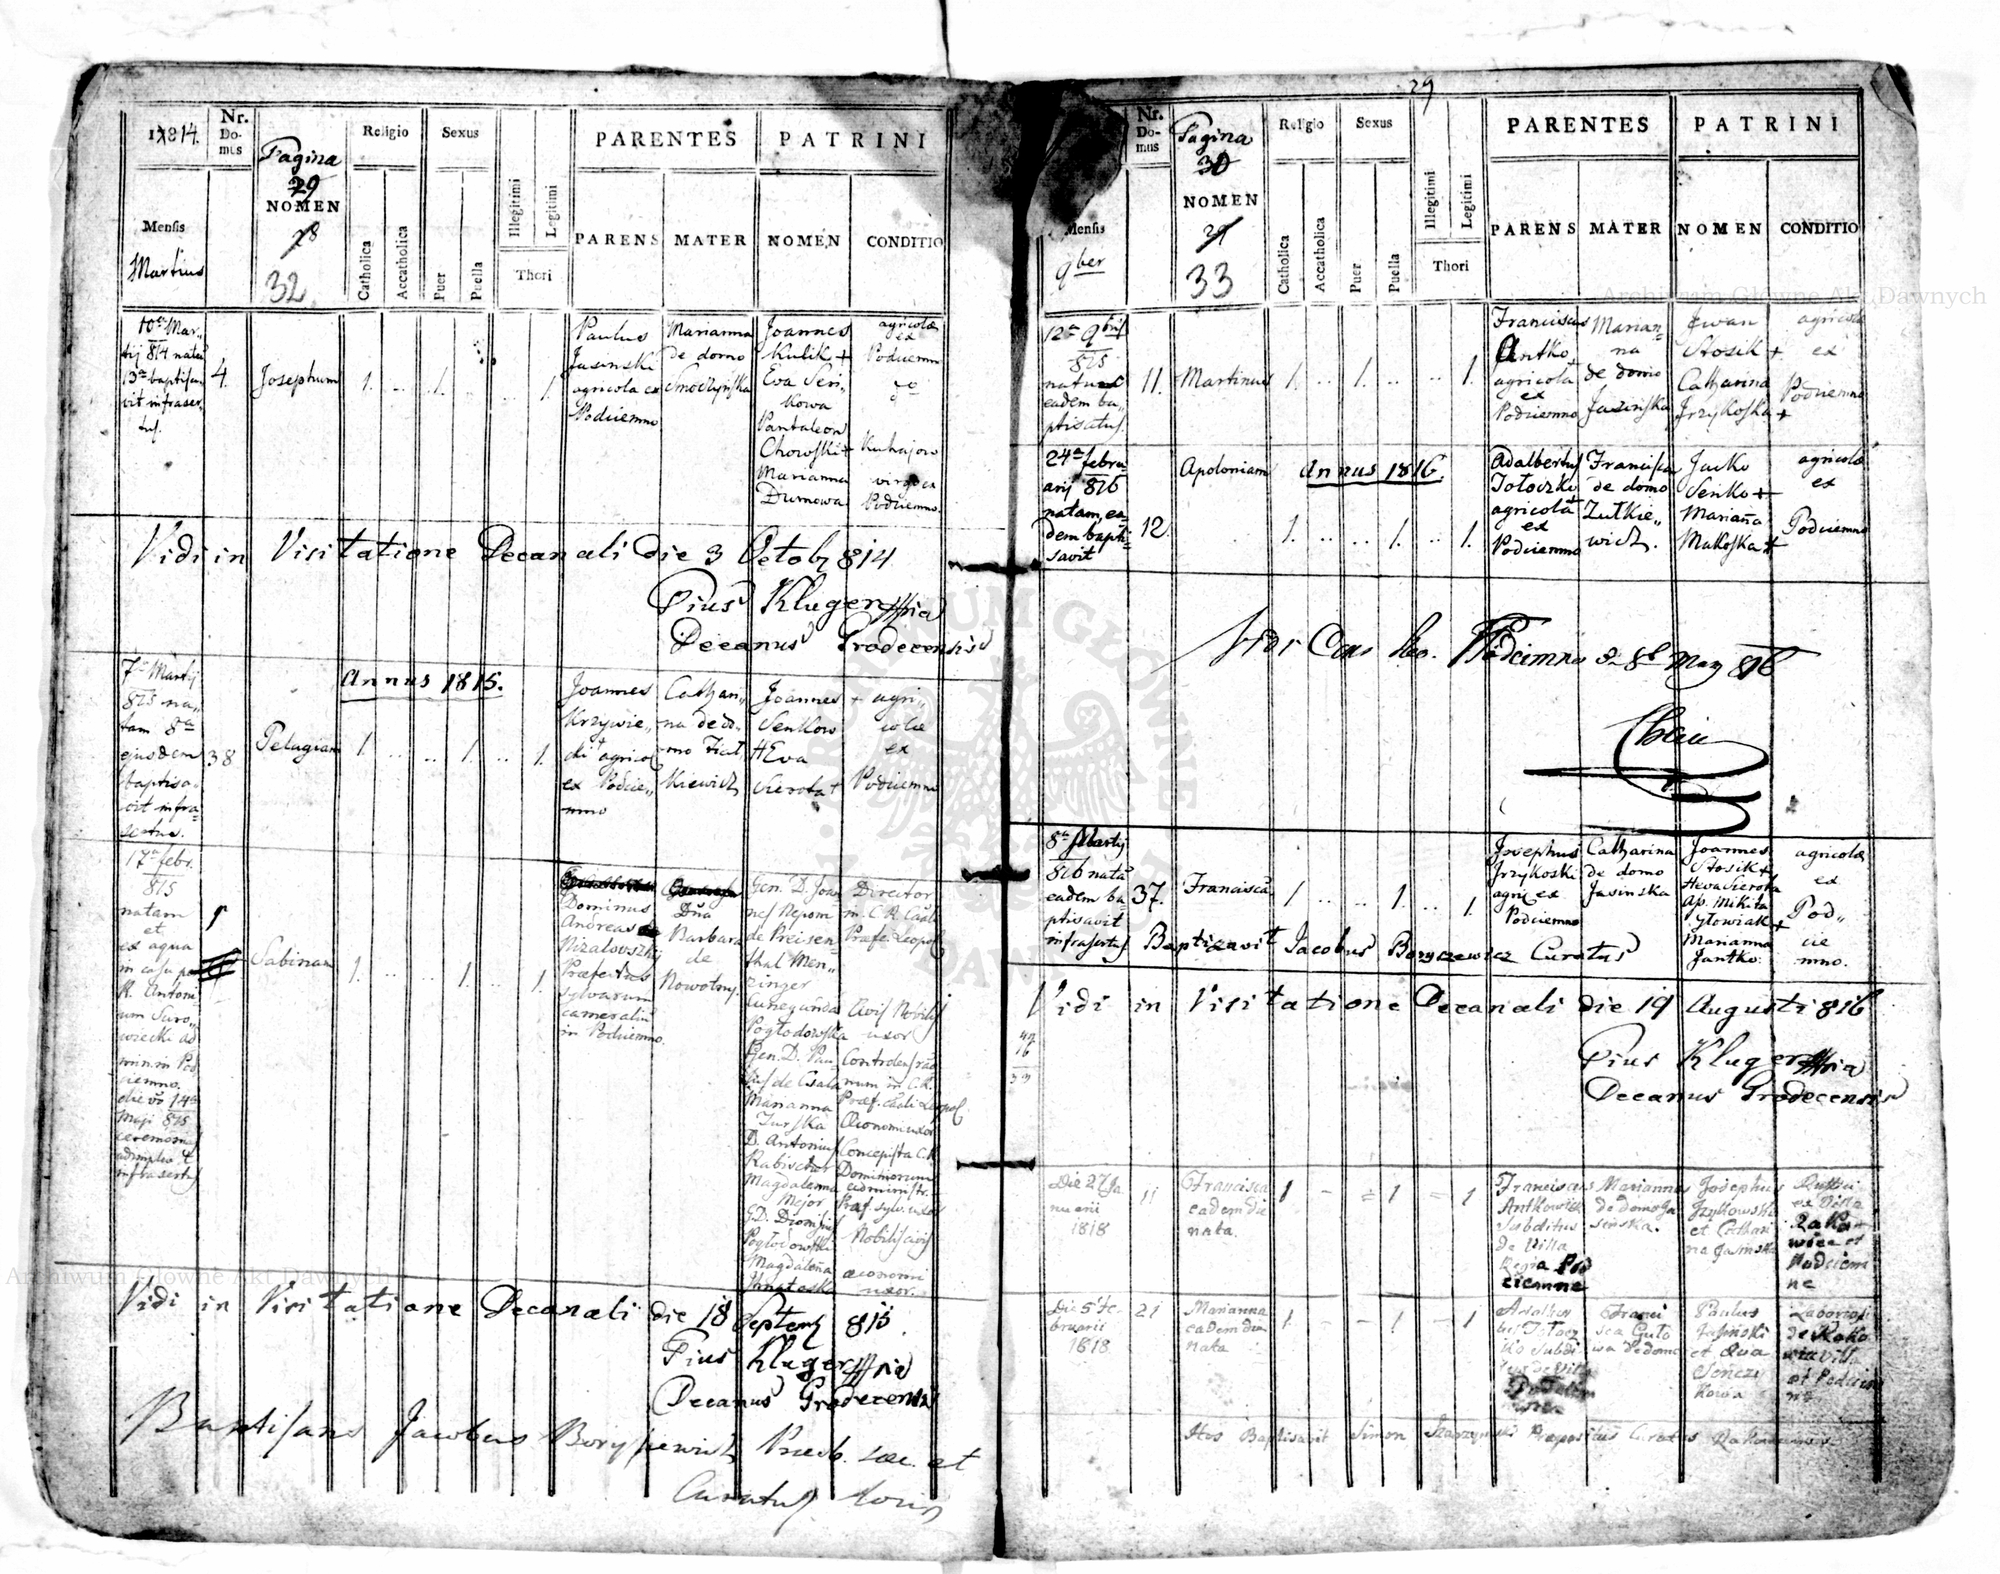 1814.
Nr. Domus
Pagina
29
NOMEN
28
32
Religio
Sexus
Catholica
Accatholica
Puer
Puella
Illegitimi
Legitimi
Thori
PARENTES
PATRINI
PARENS
MATER
NOMEN
CONDITIO
Mensis
Martius
10a Mar„
tij 814 natū
13a baptisa„
vit infrascr„
tus.
4.
Josephum
1. .. .1. .. 1.
Paulus
Jasinski
agricola ex
Podciemno
Marianna
de domo
Smoczyńska
Joannes
Kulik +
Eva Sen„
kowa
Pantaleon
Chowski +
Marianna
Dumowa
agricolæ
ex
Podciemn
Kuhajow
virgo ex
Podciemno.
Vidi in Visitatione Decanali die 3 Octob 814
Pius Kluger mpia
Decanus Grodecensis
Annus 1815.
7a Martij
815 na„
tam 8a
ejusdem
baptisa„
vit infra„
scriptus.
38
Pelagiam
1. .. .. 1. .. 1.
Joannes
Krzywie„
cki agricol
ex Podcie„
mno
Cathari„
na de do„
mo Fiał„
kiewicz
Joannes +
Senkow
+ Eva
Sierota +
agri„
colæ
ex
Podciemno
17a febr.
815
natam
et
ex aqua
in casu
R. Antoni
um Suro„
wiecki ad
min. in Pod
ciemno.
die vo 14a
Maji 815
ceremonias
adimplevit
infrascriptus
1
Sabinam
1. .. .. 1. .. 1.
Dominus
Andreas
Nizałovszky
Præfectus
sylvarum
cameraliū
in Podciemno.
Dña
Barbara
de
Nowotny.
Gen. D. Joan
nes Nepom
de Preisen„
thal Men„
zinger
Cunegunda
Pogłodowska
Gen. D. Pau„
lus de Csala
Marianna
Turska
D. Antonius
Rabischur
Magdalenna
Mejor
G.D. Dionisius
Pogłodowski
Magdalena
Janataska
Director
in C.R. Cäāli
Præfe. Leopol
Civis Nobilis
uxor
Controlens rao
num in C.R.
Præf. cäali Leopol
Œconomi uxor
Concepista C.R.
Dominiorum
administr.
Præf. sylv. uxor
Nobilis civis
œconomi
uxor.
Vidi in Visitatione Decanali die 18 Septemb 815.
Pius Kluger mpia
Decanus Grodecensis
Baptisans Jacobus Boryszewicz Presb. sæc. et
Curatus loci
29
Nr. Domus
Pagina
30
NOMEN
29
33
Religio
Sexus
Catholica
Accatholica
Puer
Puella
Illegitimi
Legitimi
Thori
PARENTES
PATRINI
PARENS
MATER
NOMEN
CONDITIO
Mensis
9ber
12a 9bris
815
natus
eadem ba„
ptisatus.
11.
Martinus
1. .. 1. .. .. 1.
Franciscus
Antko
agricola
ex
Podciemno
Marian=
na
de domo
Jasińska
Jwan
Stosik +
Catharina
Jrzykoska +
agricolæ
ex
Podciemno
24a febru„
arij 816
natam, ea„
dem bapti„
savit
12.
Apoloniam
Annus 1816.
1. .. .. 1. .. 1.
Adalbertus
Tołoczko
agricola
ex
Podciemno
Francisca
de domo
Zutkie„
wicz.
Jacko
Senko +
Mariaña
Makoska +
agricolæ
ex
Podciemno
Vidi Podciemno 28 May 816
8a Martij
816 natā
eadem ba„
ptisavit
infrascriptus
37.
Franciscā
1. .. .. 1. .. 1.
Josephus
Jrzykoski
agri ex
Podciemno
Catharina
de domo
Jasinska
Joannes
Stosik +
Heva Sierota
Ap. Mikita
Głowiak +
Marianna
Jantko.
agricolæ
ex
Pod„
cie
mno.
Baptizavit Jacobus Boryszewicz Curatus
Vidi in Visitatione Decanali die 19 Augusti 816
Pius Kluger mpia
Decanus Grodecensis
Die 27 Ja
nuarii
1818
11
Francisca
eadem die
nata.
1 - - 1 - 1
Franciscus
Antkowicz
Subditus
de Villa
Regia Pod
ciemne
Marianna
de domo Ja
sinska.
Josephus
Jzykowski
et Cathari
na Jasinska
Rustici
de Villa
Rako-
wiec et
Podciem
ne
Die 5 Fe
bruarii
1818
21
Marianna
eadem die
nata
1 - - 1 - 1
Adalber
tus Tołocz
ko Subdi
tus de Villa
Franci
sca Guto
wa de domo
Paulus
Jasinski
et Eva
Senczy
kowa
Laboriosi
de Rako
wiec Villa
et Podciem
ne
Hos Baptisavit Simon Skarzynski Præpositus Curatus Rakoviensis
Archiwum Główne Akt Dawnych
Archiwum Główne Akt Dawnych
ARCHIWUM GŁÓWNE AKT DAWNYCH